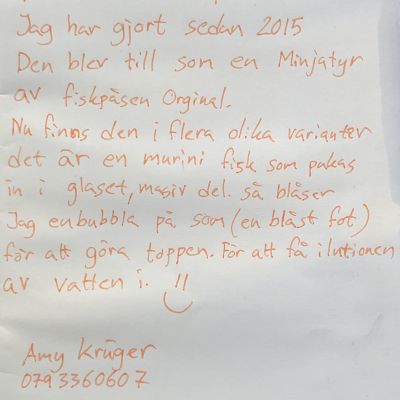 Jag har gjort sedan 2015
Den blev till som en Minjatyr
av fiskpåsen Orginal.
Nu finns den i flera olika varianter
det är en murini fisk som pukas
in i glaset, masiv del. så blåser
Jag enbubbla på som (en blåst fot)
för att göra toppen. För att få ilutionen
av vatten i. !!
Amy Krüger
0793360607